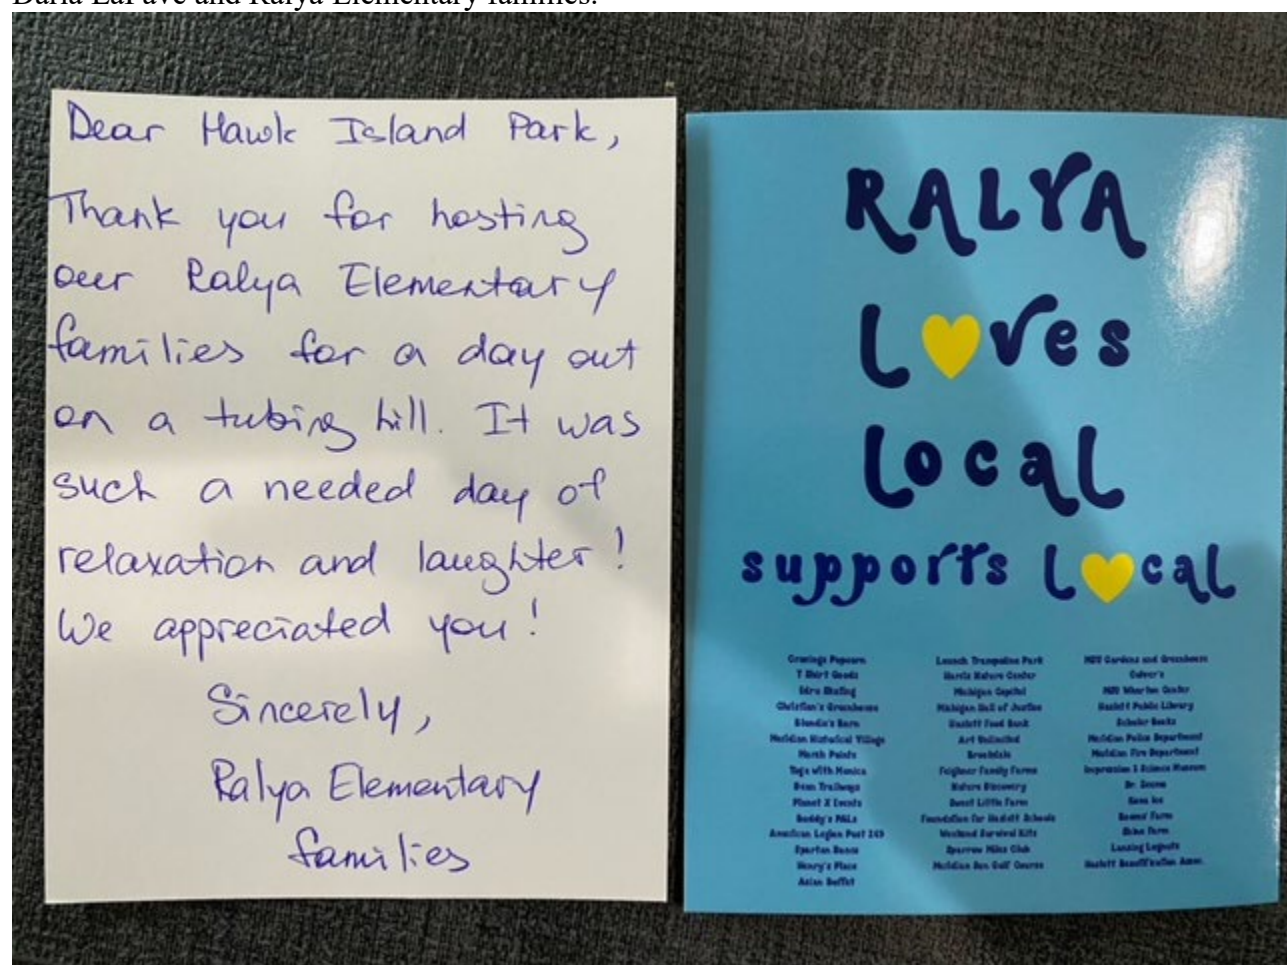 Daria LaFave and Ralya Elementary families.
Dear Hawk Island Park,
Thank you for hosting
our Ralya Elementary
families for a day out
on a tubing hill. It was
such a needed day of
relaxation and laughter!
We appreciated you!
Sincerely,
Ralya Elementary
families
RALYA
Loves
Local
supports Local
Cravings Popcorn
T Shirt Goods
Edru Skating
Christian's Greenhouse
Blondie's Barn
Meridian Historical Village
Marsh Pointe
Yoga with Monica
Dean Trailways
Planet X Events
Buddy's PALs
American Legion Post 269
Spartan Dance
Henry's Place
Asian Buffet
Launch Trampoline Park
Harris Nature Center
Michigan Capitol
Michigan Hall of Justice
Haslett Food Bank
Art Unlimited
Brookdale
Feighner Family Farms
Nature Discovery
Sweet Little Farm
Foundation for Haslett Schools
Weekend Survival Kits
Sparrow Miles Club
Meridian Sun Golf Course
MSU Gardens and Greenhouse
Culver's
MSU Wharton Center
Haslett Public Library
Scholar Books
Meridian Police Department
Meridian Fire Department
Impression 5 Science Museum
Kona Ice
Farm
Farm
Lansing Lugnuts
Haslett Beautification Assoc.